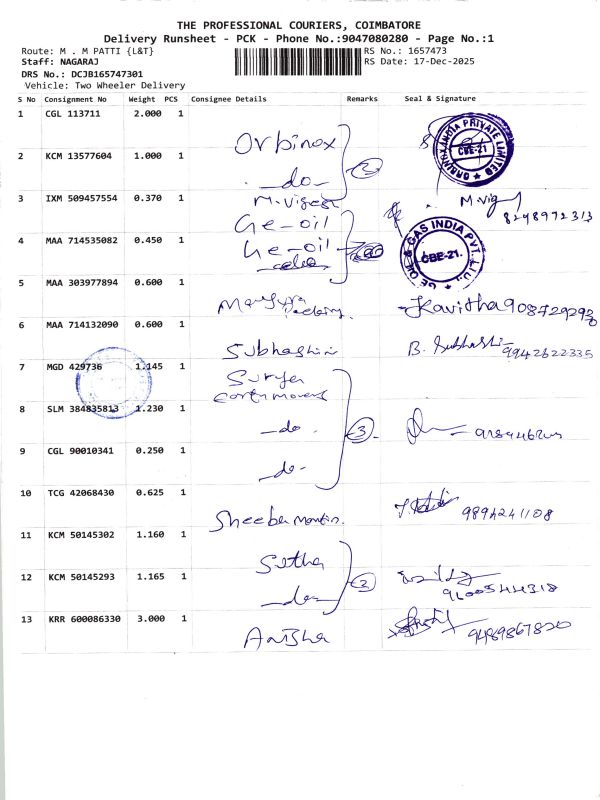 THE PROFESSIONAL COURIERS, COIMBATORE
Delivery Runsheet - PCK - Phone No.:9047080280 - Page No.:1
Route: M . M PATTI {L&T} RS No.: 1657473
Staff: NAGARAJ RS Date: 17-Dec-2025
DRS No.: DCJB165747301
Vehicle: Two Wheeler Delivery
S No Consignment No Weight PCS Consignee Details Remarks Seal & Signature
1 CGL 113711 2.000 1 Orbinox
CBE-21
2 KCM 13577604 1.000 1 - do -
3 IXM 509457554 0.370 1 Ge-oil M.Vig
8248972313
4 MAA 714535082 0.450 1 Ge-oil
GE OIL & GAS INDIA PVT. LTD.
CBE-21.
5 MAA 303977894 0.600 1 Kavitha 9087292930
6 MAA 714132090 0.600 1 Subhashini B. Subhashi 9942622335
7 MGD 429736 1.145 1 Surya
earthmovers
8 SLM 384835813 1.230 1 - do - 3
9 CGL 90010341 0.250 1 - do -
10 TCG 42068430 0.625 1 Sheeba 9894241108
11 KCM 50145302 1.160 1 Setha
12 KCM 50145293 1.165 1 2 9600544318
13 KRR 600086330 3.000 1 Anisha 9489867820